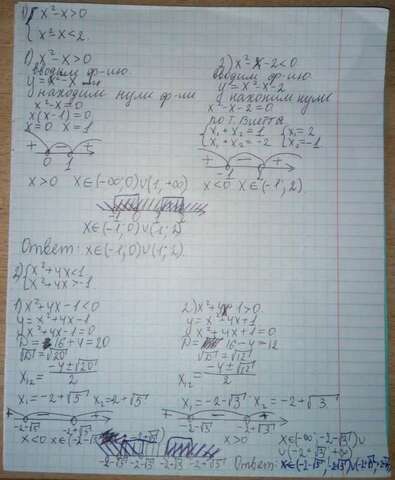 1) { x²-x>0
x²-x<2.
1) x²-x>0
вводим ф-ию
y=x²-x
находим нули ф-ии
x²-x=0
x(x-1)=0
x=0 x=1
+ - +
0 1
x>0 x∈(-∞;0)∪(1;+∞)
2) x²-x-2<0
вводим ф-ию
y=x²-x-2
находим нули
x²-x-2=0
по т. Виетта
{ x₁+x₂=1 { x₁=2
x₁+x₂=-2 x₂=-1
+ - +
-1
x<0 x∈(-1;2).
x∈(-1;0)∪(1;2)
Ответ: x∈(-1;0)∪(1;2).
2) { x²+4x<1
x²+4x>-1
1) x²+4x-1<0
y=x²+4x-1
x²+4x-1=0
D=16+4=20
√D=√20
x₁₂= -4±√20 / 2
x₁=-2+√5 x₂=-2+√5
+ - +
-2-√5 -2+√5
x<0 x∈(-2-√5
2) x²+4x+1>0
y=x²+4x+1
x²+4x+1=0
D=16-4=12
√D=√12
x₁₂= -4±√12 / 2
x₁=-2-√3 x₂=-2+√3
+ - +
-2-√3 -2+√3
x>0 x∈(-∞;-2-√3)∪
∪(-2+√3;+∞)
-2-√5 -2-√3 -2+√3 -2+√5
Ответ: x∈(-2-√5;-2-√3)∪(-2+√3;